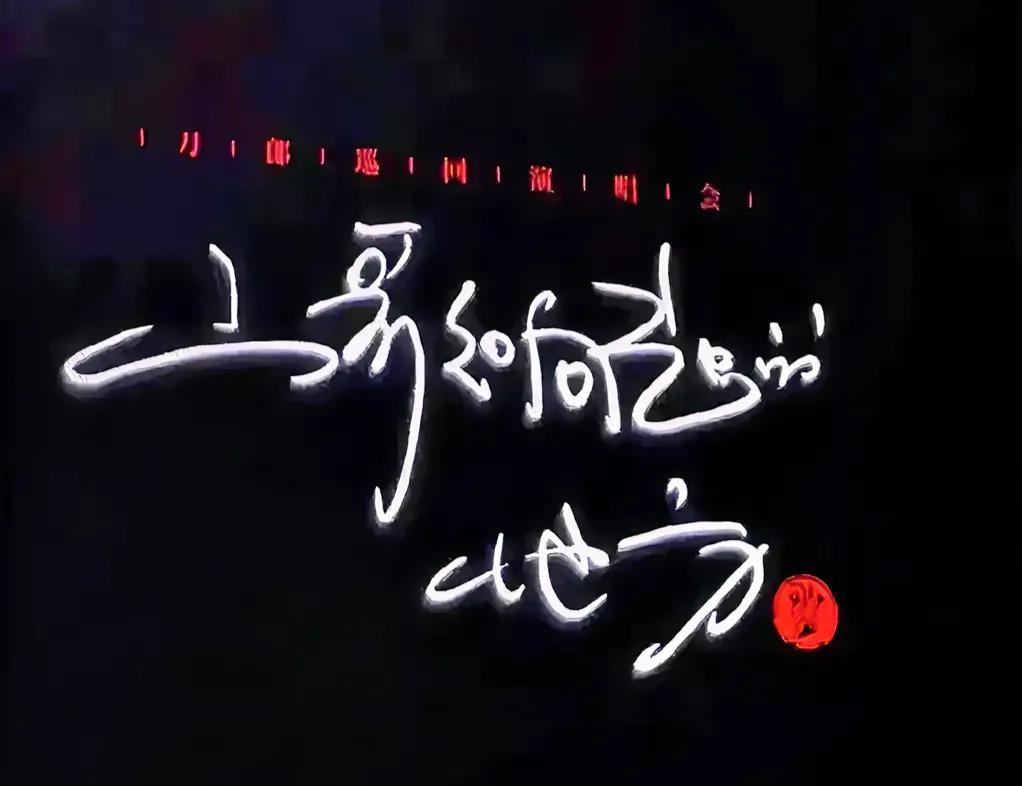 |刀|郎|巡|回|演|唱|会|
山歌响起的
地方